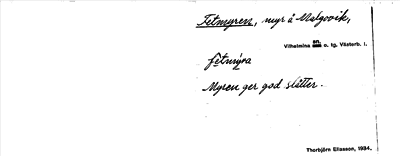 Fetmyren, myr å Malgovik,
Vilhelmina sn. o. tg. Västerb. l.
fetmýra
Myren ger god slåtter.
Thorbjörn Eliasson, 1934.